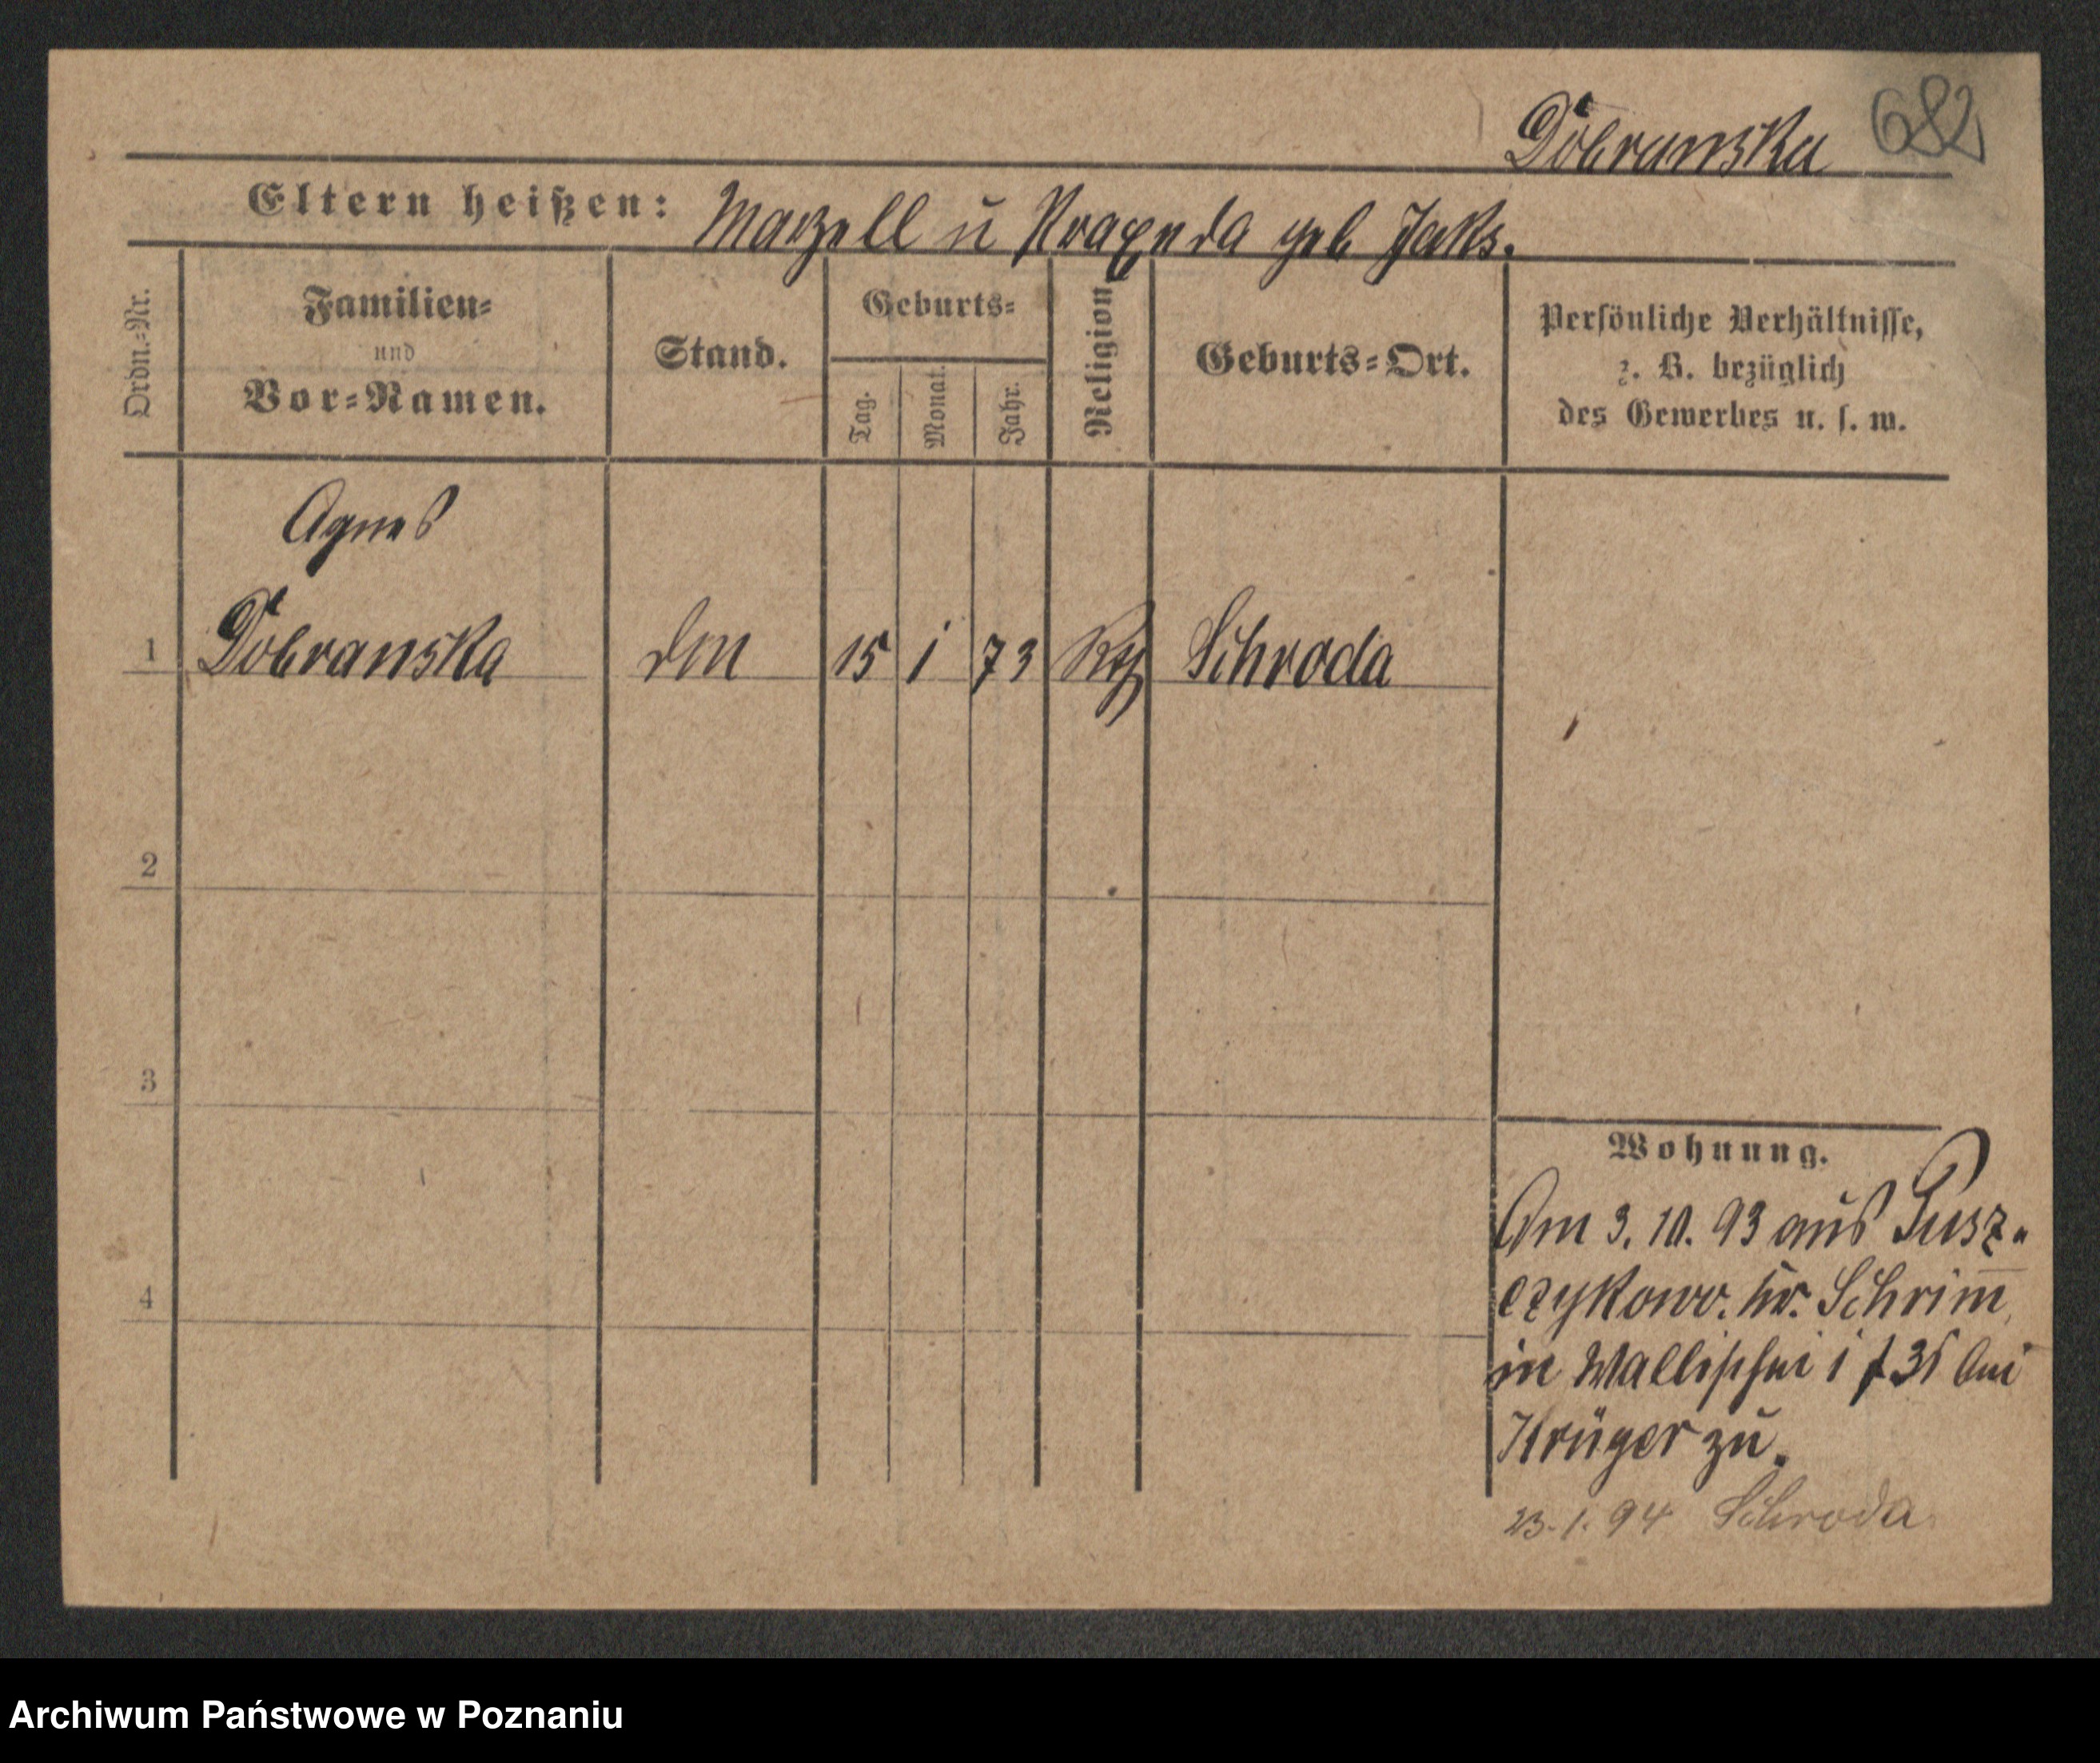 Dobranska 682
Eltern heißen: Marzell u Praxeda geb Jaks.
Ordn.-Nr.
Familien-
und
Vor-Namen.
Stand.
Geburts-
Tag.
Monat.
Jahr.
Religion
Geburts-Ort.
Persönliche Verhältnisse,
z. B. bezüglich
des Gewerbes u. s. w.
Agnes
1 Dobranska 15 1 73 Kth Schroda
2
3
4
Wohnung.
Am 3. 10. 93 aus Pusz-
czykowo. Kr. Schrim̅
in Wallischei 1 bei
Krüger zu.
23. 1. 94 Schroda
Archiwum Państwowe w Poznaniu